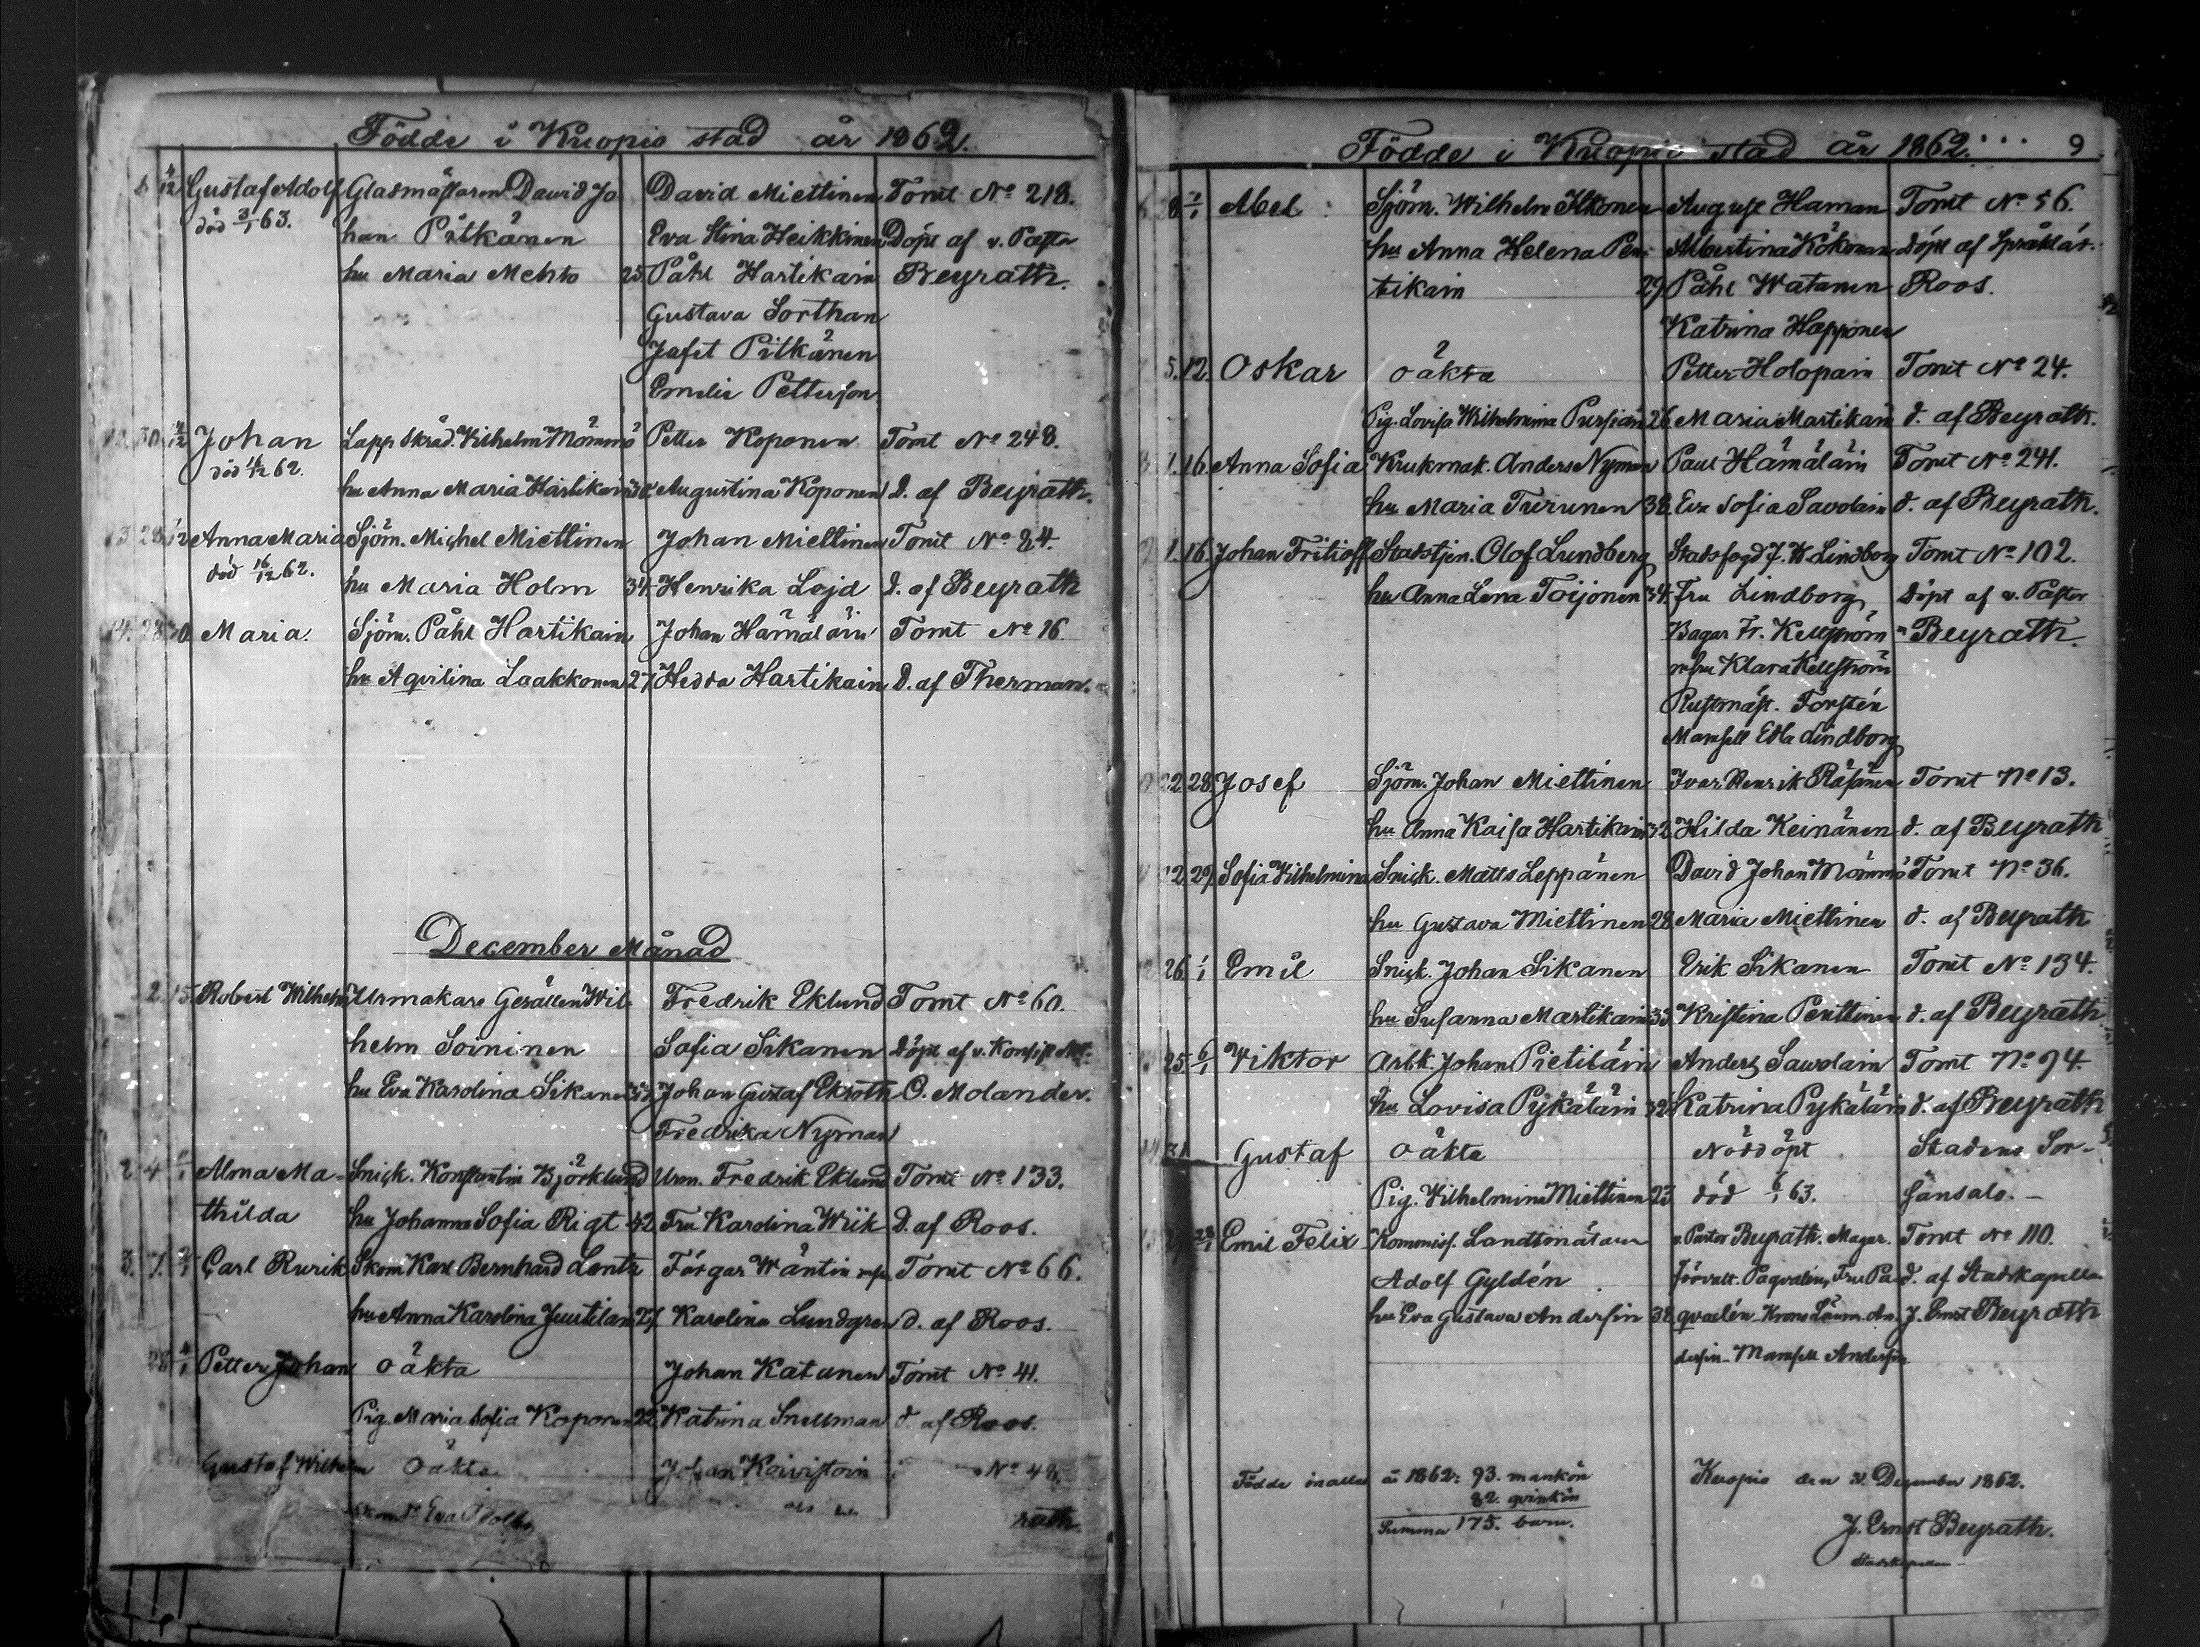 Födde i Kuopio stad år 1862.
4/12 Gustaf Adolf Glasmästaren David Jo David Miettinen Tomt No 218.
död 3/1 63. han Pitkänen Eva Stina Heikkinen Döpt af v. Pastor
hu Maria Mehto 25 Påhl Hartikain Beyrath.
Gustava Sorthan
Jafet Pitkänen
Emelie Petterson
30 Johan Lappskräd. Wilhelm Mömmö Petter Koponen Tomt No 248.
död 62. hu Anna Maria Hartikain Augustina Koponen D. af Beyrath.
Anna Maria Sjöm. Michel Miettinen Johan Miettinen Tomt No 84.
död 16/12 62. hu Maria Holm 34 Henrika Lojd D. af Beyrath
14. 28 30 Maria. Sjöm. Påhl Hartikain Johan Hämäläin Tomt No 16
hu Aqvilina Laakkonen 27 Hedda Hartikain D. af Therman.
December Månad
2 15. Robert Wilhelm Urmakare Gesällen Wil Fredrik Eklund Tomt No 60.
helm Soininen Sofia Sikanen Döpt af v. Konsist.
hu Eva Karolina Sikanen Johan Gustaf Ekroth O. Molander.
Fredrika Nyman
2 4 Alma Ma- Snick. Konstantin Björklund Urm. Fredrik Eklund Tomt No 133.
thilda hu Johanna Sofia Rigt 42 Fru Karolina Wiik D. af Roos.
3. 7. Carl Rurik Skom. Karl Bernhard Lentz Färgar Wäntin Tomt No 66.
hu Anna Karolina Juutilain 27 Karolina Lundgren D. af Roos.
28 Petter Johan oäkta Johan Katanen Tomt No 41.
Pig. Maria Sofia Koponen 22 Katrina Snellman d. af Roos.
Gustaf Wilhelm Oäkta Johan Koivistoin No
Eva
rath.
Födde i Kuopio stad år 1862. 9
8 Abel Sjöm. Wilhelm Ilkonen August Haman Tomt No 56.
hu Anna Helena Pen- Albertina Kökman Döpt af Språklär.
tikain 29 Påhl Watanen Roos.
Katrina Happonen
5. 12. Oskar oäkta Petter Holopain Tomt No 24.
Pig. Lovisa Wilhelmina Pursiain 26 Maria Martikain d. af Beyrath.
1. 16. Anna Sofia Krukmak. Anders Nyman Paul Hämäläin Tomt No 241.
hu Maria Turunen 38 Eva Sofia Savolain d. af Beyrath.
1. 16. Johan Fritioff Stadstjen. Olof Lundberg Stadsfogd J. W. Lindborg Tomt No 102.
hu Anna Lena Toijonen 34. Fru Lindborg, Döpt af v. Pastor
Bagar Fr. Kellström Beyrath.
m. hu Klara Kellström
Rustmäst. Forstén
Mamsell Edla Lindborg
22 28 Josef Sjöm. Johan Miettinen Ivar Henrik Räsänen Tomt No 13.
hu Anna Kaisa Hartikain 32 Hilda Keinänen d. af Beyrath
12 29. Sofia Wilhelmina Snick. Matts Leppänen David Johan Mömmö Tomt No 36.
hu Gustava Miettinen 28 Maria Miettinen d. af Beyrath
26 1/1 Emil Snick. Johan Sikanen Erik Sikanen Tomt No 134.
hu Susanna Martikain 33 Kristina Penttinen d. af Beyrath
25 6/1 Viktor Arbk. Johan Pietiläin Anders Sawolain Tomt No 94.
hu Lovisa Pykäläin 32 Katrina Pykäläin d. af Beyrath
31 Gustaf oäkta Nöddöpt Stadens Sor-
Pig. Wilhelmina Miettinen 23 död 6/1 63. Jänsalo.
Emil Felix Kommiss. Landtmätaren v. Pastor Beyrath. Magas. Tomt No 110.
Adolf Gyldén Förvalt. Paqvalén, Fru Pa d. af Stadskapellan
hu Eva Gustava Andersin 38 qvalén. Krono Länsm. An J. Ernst Beyrath
dersin. Mamsell Andersin
Födde inalles år 1862: 93. mankön Kuopio den 31 December 1862.
82. qvinkön
Summa 175. barn. J. Ernst Beyrath.